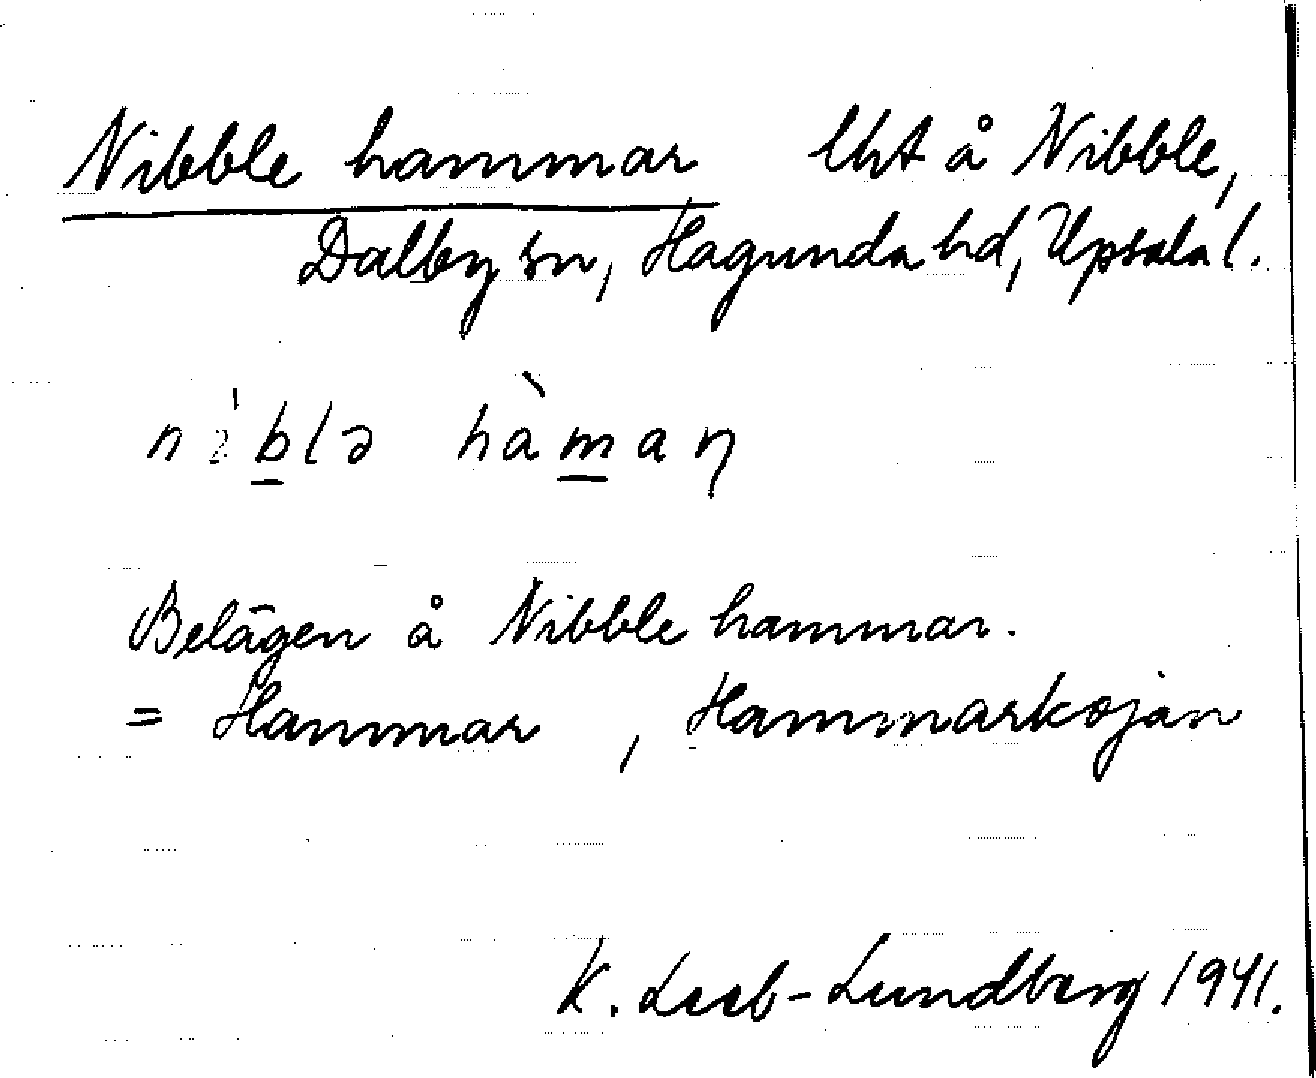 Nibble hammar lht å Nibble,
Dalby sn, Hagunda hd, Upsala l.
ni̍b̲lə hàm̲aɳ
Belägen å Nibble hammar.
= Hammar , Hammarkojan
K. Leeb-Lundberg 1941.